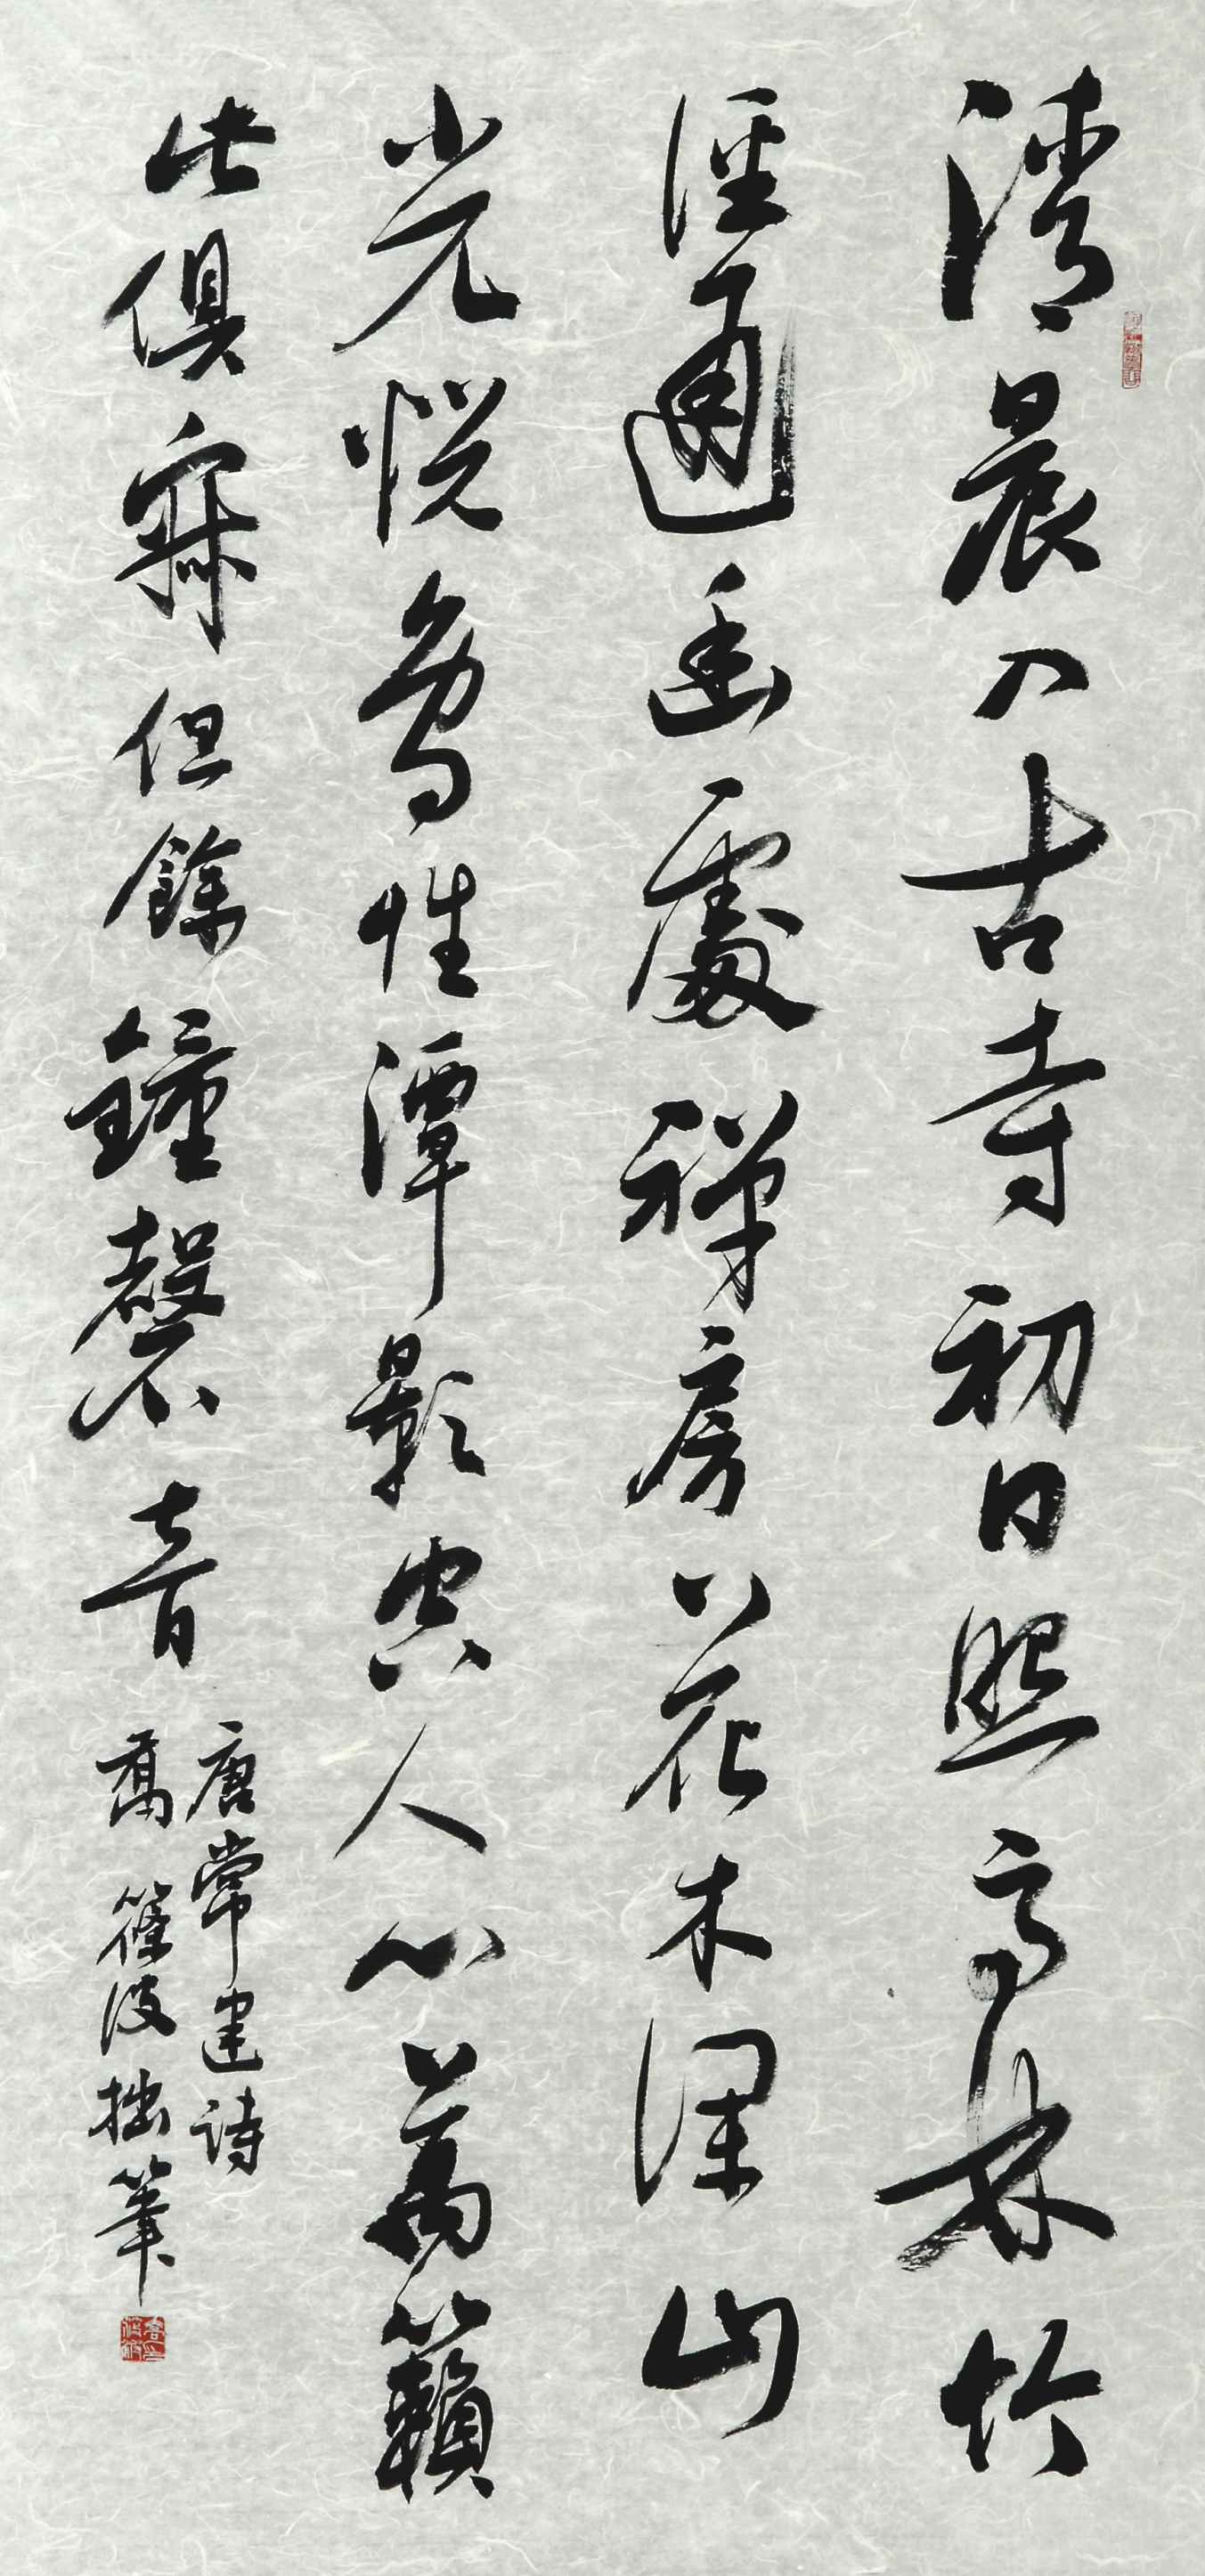 清晨入古寺初日照高林竹
徑通幽處禪房花木深山
光悅鳥性潭影空人心萬籟
此俱寂但餘鐘磬音
唐常建詩
喬篠波拙筆